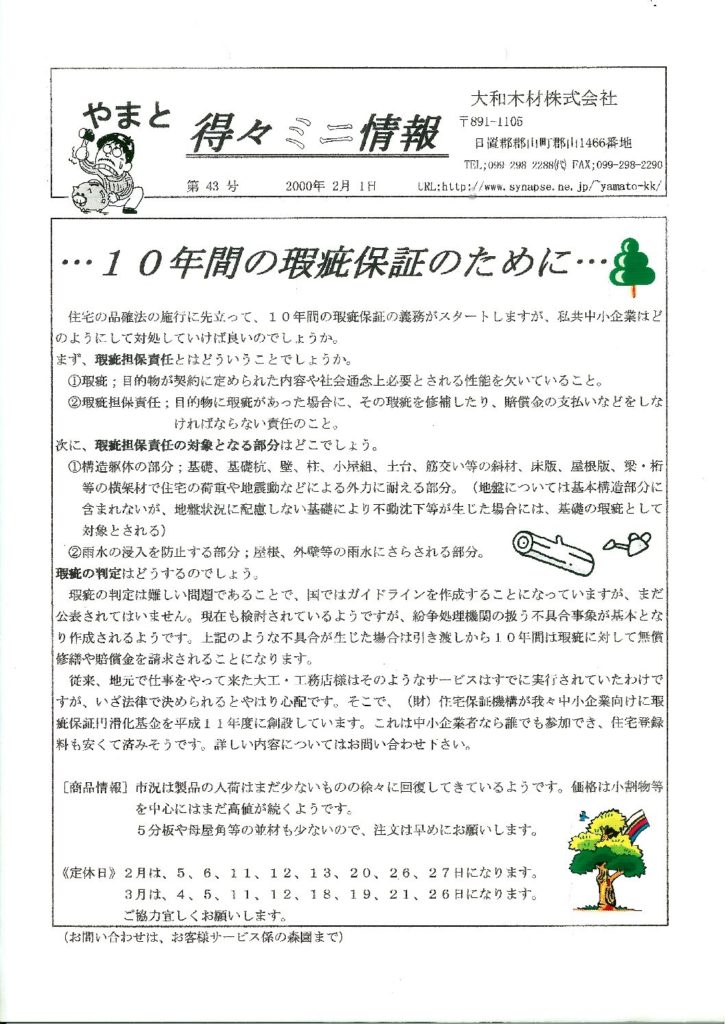 やまと
得々ミニ情報
大和木材株式会社
〒891-1105
日置郡郡山町郡山1466番地
TEL;099-298-2288㈹ FAX;099-298-2290
第 43 号　2000年 2月 1日　URL:http://www.synapse.ne.jp/~yamato-kk/
…１０年間の瑕疵保証のために…
住宅の品確法の施行に先立って、１０年間の瑕疵保証の義務がスタートしますが、私共中小企業はど
のようにして対処していけば良いのでしょうか。
まず、瑕疵担保責任とはどういうことでしょうか。
①瑕疵；目的物が契約に定められた内容や社会通念上必要とされる性能を欠いていること。
②瑕疵担保責任；目的物に瑕疵があった場合に、その瑕疵を修補したり、賠償金の支払いなどをしな
ければならない責任のこと。
次に、瑕疵担保責任の対象となる部分はどこでしょう。
①構造躯体の部分；基礎、基礎杭、壁、柱、小屋組、土台、筋交い等の斜材、床版、屋根版、梁・桁
等の横架材で住宅の荷重や地震動などによる外力に耐える部分。（地盤については基本構造部分に
含まれないが、地盤状況に配慮しない基礎により不動沈下等が生じた場合には、基礎の瑕疵として
対象とされる）
②雨水の浸入を防止する部分；屋根、外壁等の雨水にさらされる部分。
瑕疵の判定はどうするのでしょう。
瑕疵の判定は難しい問題であることで、国ではガイドラインを作成することになっていますが、まだ
公表されてはいません。現在も検討されているようですが、紛争処理機関の扱う不具合事象が基本とな
り作成されるようです。上記のような不具合が生じた場合は引き渡しから１０年間は瑕疵に対して無償
修繕や賠償金を請求されることになります。
従来、地元で仕事をやって来た大工・工務店様はそのようなサービスはすでに実行されていたわけで
すが、いざ法律で決められるとやはり心配です。そこで、（財）住宅保証機構が我々中小企業向けに瑕
疵保証円滑化基金を平成１１年度に創設しています。これは中小企業者なら誰でも参加でき、住宅登録
料も安くて済みそうです。詳しい内容についてはお問い合わせ下さい。
［商品情報］市況は製品の入荷はまだ少ないものの徐々に回復してきているようです。価格は小割物等
を中心にはまだ高値が続くようです。
５分板や母屋角等の並材も少ないので、注文は早めにお願いします。
《定休日》２月は、５、６、１１、１２、１３、２０、２６、２７日になります。
３月は、４、５、１１、１２、１８、１９、２１、２６日になります。
ご協力宜しくお願いします。
（お問い合わせは、お客様サービス係の森園まで）